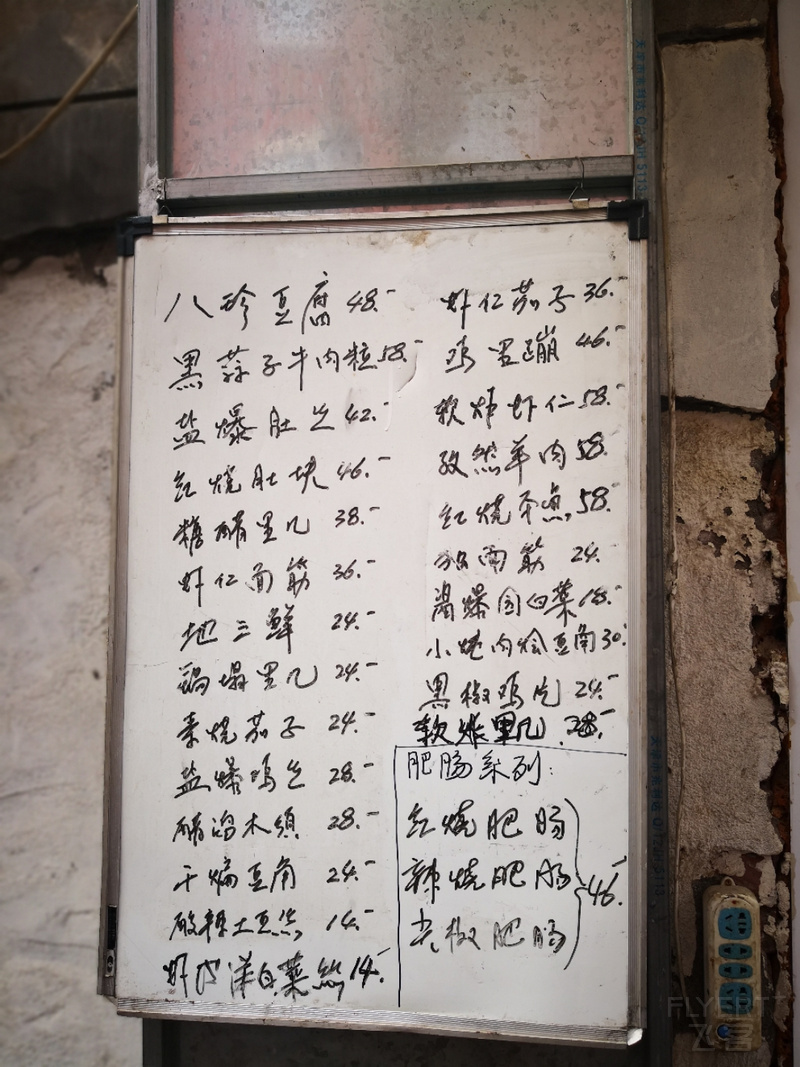 八珍豆腐 48.-
黑蒜子牛肉粒 58.-
盐爆肚丝 42.-
红烧肚块 46.-
糖醋里几 38.-
虾仁面筋 36.-
地三鲜 24.-
锅塌里几 24.-
素烧茄子 24.-
盐爆鸡丝 28.-
醋溜木须 28.-
干煸豆角 24.-
酸辣土豆丝 14.-
虾皮洋白菜丝 14.-
虾仁茄子 36.-
鸡里蹦 46.-
软炸虾仁 58.-
孜然羊肉 58.-
红烧平鱼 58.-
面筋 24.-
园白菜 18.-
小炖肉烩豆角 30.-
黑椒鸡片 24.-
软炸里几 38.-
肥肠系列：
红烧肥肠
辣烧肥肠 46.-
尖椒肥肠
FLYERT
飞客